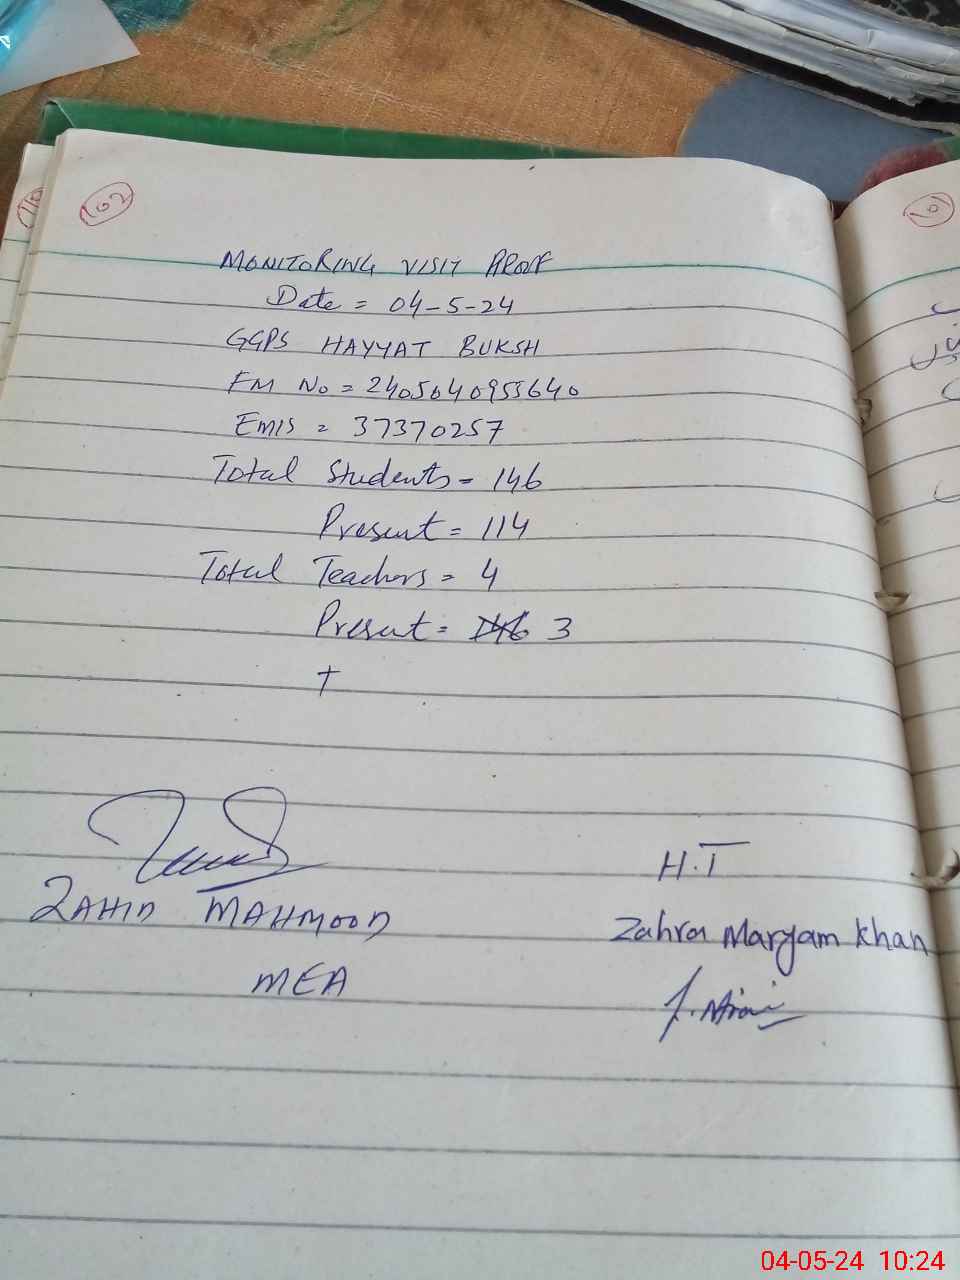 102
101
MONITORING VISIT PROOF
Date = 04-5-24
GGPS HAYYAT BUKSH
FM No = 2405040953640
EMIS = 37370257
Total Students = 146
Present = 114
Total Teachers = 4
Present = 3
ZAHID MAHMOOD
MEA
H.T
Zahra Maryam Khan
04-05-24 10:24